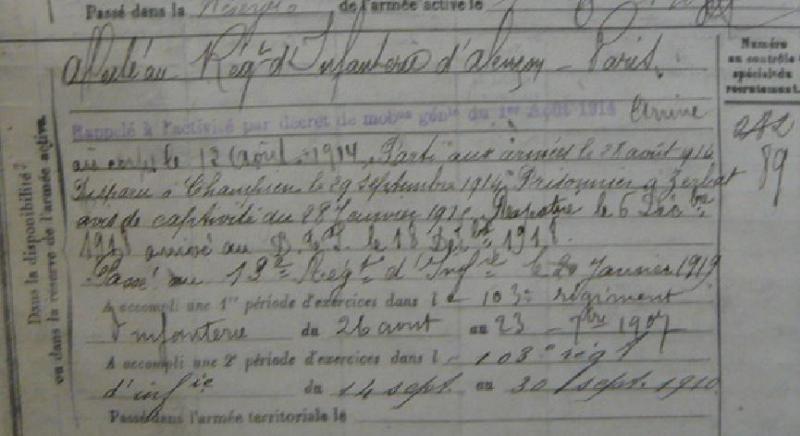 Passé dans la Réserve de l'armée active le
affecté au Régt d'Infanterie d'Alençon - Paris.
Numéro au contrôle spécial du recrutement.
Rappelé à l'activité par décret de mobon génle du 1er Août 1914 Arrivé
au corps le 12 août 1914, Parti aux armées le 28 août 914
282
Disparu à Chaulnes le 29 septembre 1914. Prisonnier à Zerbst
89
avis de captivité du 28 Janvier 1915. Rapatrié le 6 Décbre
1918 arrivé au le 18 Décbre 1918.
Passé au 13e Régt d'Infrie le 20 Janvier 1919
A accompli une 1re période d'exercices dans le 103e régiment
d'infanterie du 26 aout au 23 - 7bre 1907
A accompli une 2e période d'exercices dans le 103e régt
d'infie du 14 sept. au 30 sept. 1910
Passé dans l'armée territoriale le
Dans la disponibilité ?
ou dans la réserve de l'armée active.